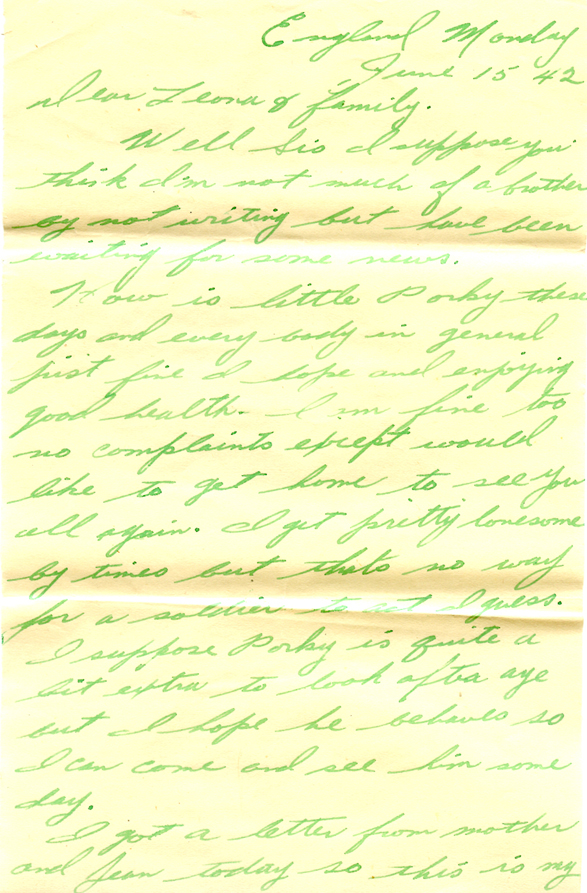 England Monday
June 15 42
Dear Leona & family.
Well Sis I suppose you
think I'm not much of a brother
by not writing but have been
waiting for some news.
How is little Porky these
days and every body in general
just fine I hope and enjoying
good health. I'm fine too
no complaints except would
like to get home to see you
all again. I get pretty lonesome
by times but thats no way
for a soldier to act I guess.
I suppose Porky is quite a
bit extra to look after aye
but I hope he behaves so
I can come and see him some
day.
I got a letter from mother
and Jean today so this is my